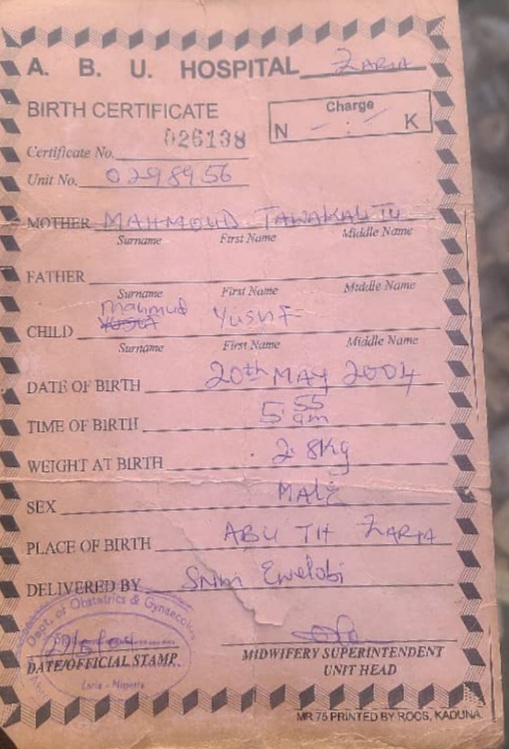 A. B. U. HOSPITAL ZARIA
BIRTH CERTIFICATE
Charge
N - : - K
Certificate No. 026138
Unit No. 0298956
MOTHER MAHMOUD TAWAKALITU
Surname First Name Middle Name
FATHER
Surname First Name Middle Name
Mahmud
CHILD Yusuf
Surname First Name Middle Name
DATE OF BIRTH 20th MAY 2004
TIME OF BIRTH 5 55 am
WEIGHT AT BIRTH 2.8Kg
SEX MALE
PLACE OF BIRTH ABU TH ZARIA
DELIVERED BY
Dept. of Obstetrics & Gynaecology
DATE/OFFICIAL STAMP.
Zaria - Nigeria
MIDWIFERY SUPERINTENDENT
UNIT HEAD
MR 75 PRINTED BY ROCS, KADUNA